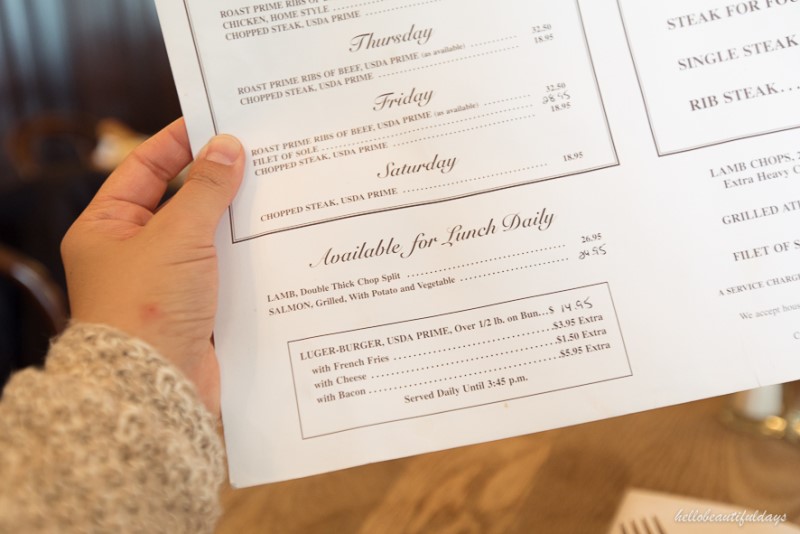 ROAST PRIME RIBS OF
CHICKEN, HOME STYLE
CHOPPED STEAK, USDA PRIME
Thursday
ROAST PRIME RIBS OF BEEF, USDA PRIME (as available) 32.50
CHOPPED STEAK, USDA PRIME 18.95
Friday
ROAST PRIME RIBS OF BEEF, USDA PRIME (as available) 32.50
FILET OF SOLE 28.95
CHOPPED STEAK, USDA PRIME 18.95
Saturday
CHOPPED STEAK, USDA PRIME 18.95
Available for Lunch Daily
LAMB, Double Thick Chop Split 26.95
SALMON, Grilled, With Potato and Vegetable 24.95
LUGER-BURGER, USDA PRIME, Over 1/2 lb. on Bun...$ 14.95
with French Fries $3.95 Extra
with Cheese $1.50 Extra
with Bacon $5.95 Extra
Served Daily Until 3:45 p.m.
STEAK FOR
SINGLE STEAK
RIB STEAK...
LAMB CHOPS,
Extra Heavy
GRILLED
FILET OF
A SERVICE
We accept
hellobeautifuldays